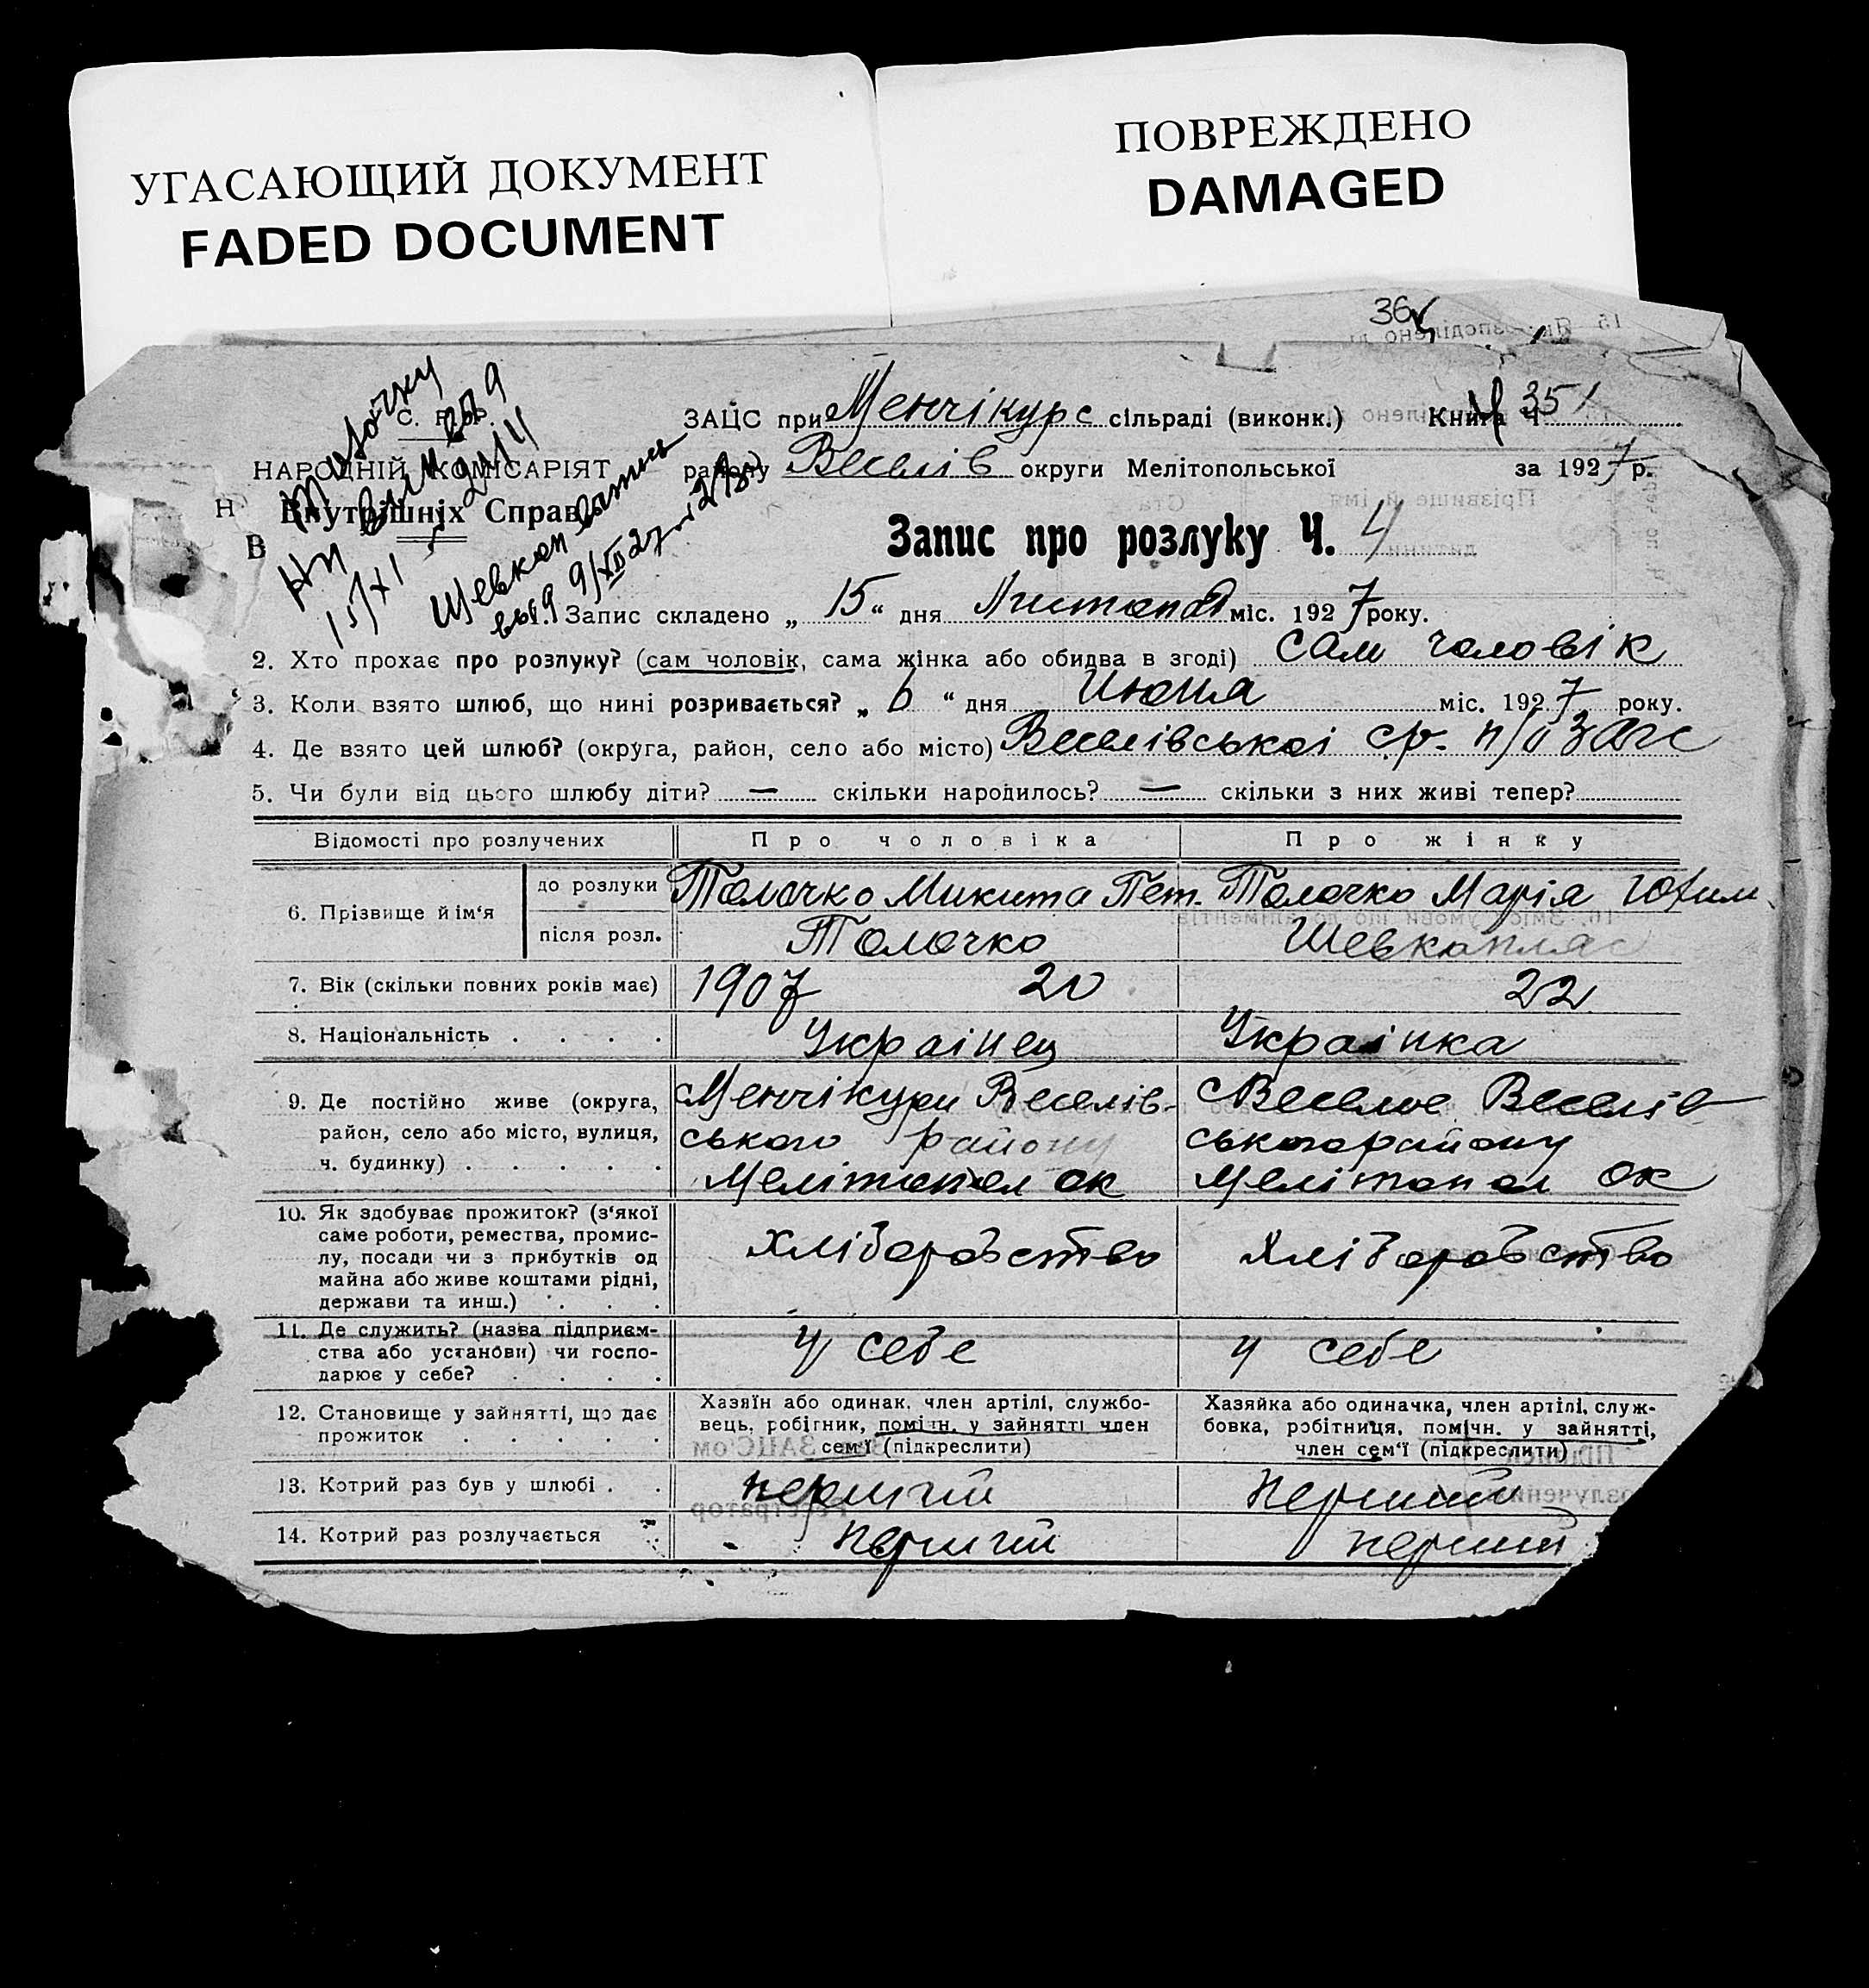 УГАСАЮЩИЙ ДОКУМЕНТ
FADED DOCUMENT
ПОВРЕЖДЕНО
DAMAGED
36
ЗАЦС при Менчікурс сільраді (виконк.) Книга Ч 351
НАРОДНІЙ КОМІСАРІЯТ
району Веселів округи Мелітопольської за 1927 р.
Внутрішніх Справ
Запис про розлуку Ч. 4
Запис складено „ 15 “ дня Листопад міс. 1927 року.
2. Хто прохає про розлуку? (сам чоловік, сама жінка або обидва в згоді) сам чоловік
3. Коли взято шлюб, що нині розривається? „ 6 “ дня Июня міс. 1927 року.
4. Де взято цей шлюб? (округа, район, село або місто) Веселівськоі ср. п/о Загс
5. Чи були від цього шлюбу діти? — скільки народилось? — скільки з них живі тепер?
Відомості про розлучених Про чоловіка Про жінку
6. Прізвище й ім‘я
до розлуки Толочко Микита Пет. Толочко Марія Юхим
після розл. Толочко Шевкопляс
7. Вік (скільки повних років має) 1907 20 22
8. Національність . . . . Украінец Украінка
9. Де постійно живе (округа, район, село або місто, вулиця, ч. будинку) . . . . .
Менчікури Веселів-
ського району
Мелітопол ок
с Веселое Веселів
ського району
Мелітопол ок
10. Як здобуває прожиток? (з‘якої
саме роботи, ремества, промис-
лу, посади чи з прибутків од
майна або живе коштами рідні,
держави та инш.) . . .
хліборобство хліборобство
11. Де служить? (назва підприєм-
ства або установи) чи госпо-
дарює у себе? . . . .
у себе у себе
12. Становище у зайнятті, що дає
прожиток . . . . .
Хазяїн або одинак, член артілі, службо-
вець, робітник, помічн. у зайнятті член
сем‘ї (підкреслити)
Хазяйка або одиначка, член артілі, служ-
бовка, робітниця, помічн. у зайнятті,
член сем‘ї (підкреслити)
13. Котрий раз був у шлюбі . . перший перший
14. Котрий раз розлучається перший перший